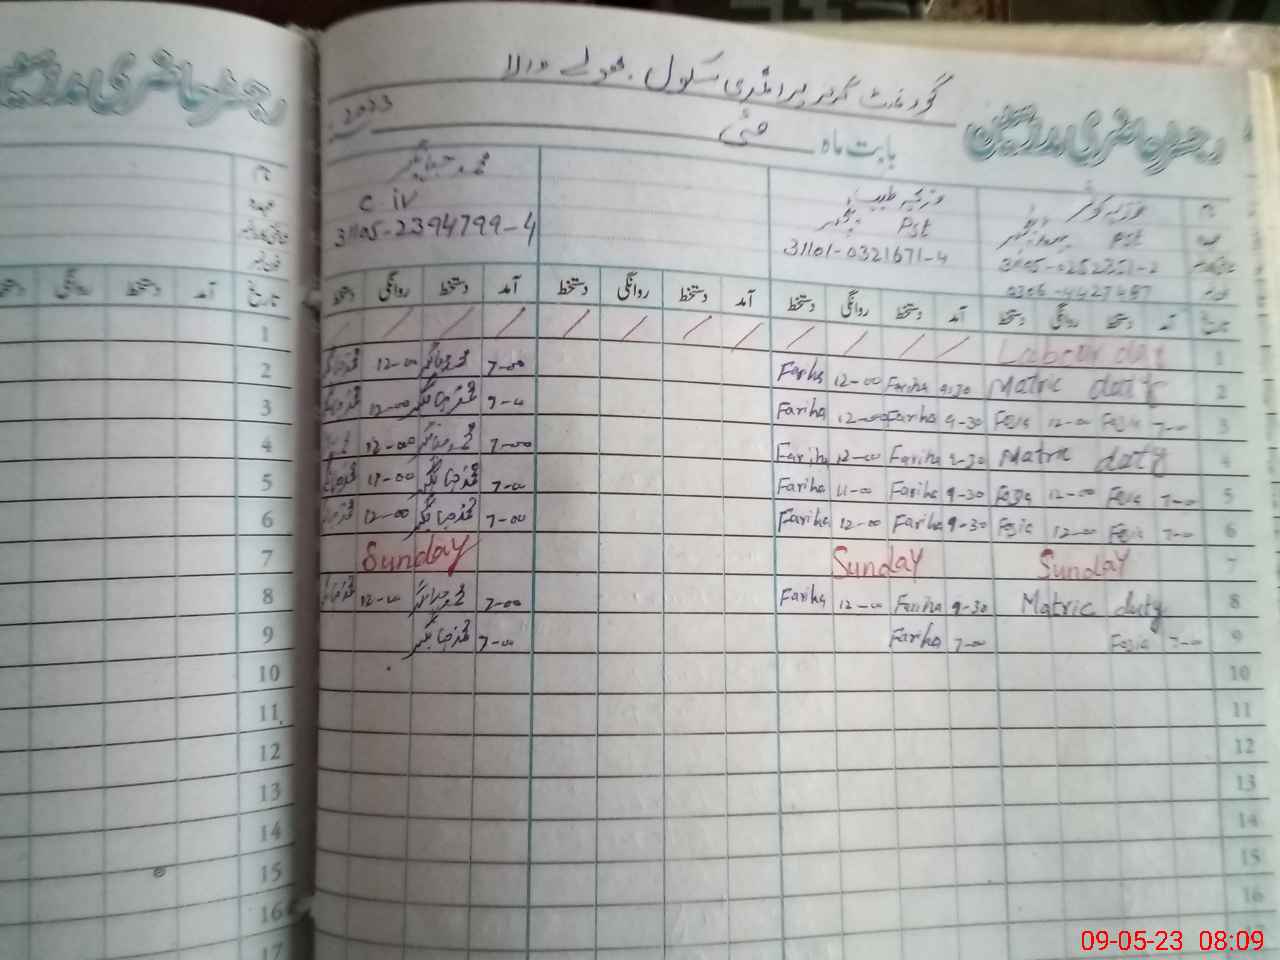 رجسٹر حاضری مدرسین
گورنمنٹ گرلز پرائمری سکول
بابت ماہ مئی 2023
نام
عہدہ Pst Pst C iv
31105-0252351-2 31101-0321671-4 31105-2394799-4
0306-4427487
تاریخ آمد دستخط روانگی دستخط آمد دستخط روانگی دستخط آمد دستخط روانگی دستخط آمد دستخط روانگی دستخط
1 Labour day
2 Matric duty 9-30 Fariha 12-00 Fariha 7-00 محمد جہانگیر 12-00
3 7-00 Fozia 12-00 Fozia 9-30 Fariha 12-00 Fariha محمد جہانگیر 12-00
4 Matric duty 9-30 Fariha 12-00 Fariha 7-00 محمد جہانگیر 12-00
5 7-00 Fozia 12-00 Fozia 9-30 Fariha 11-00 Fariha 7-00 محمد جہانگیر
6 7-00 Fozia 12-00 Fozia 9-30 Fariha 12-00 Fariha 7-00 محمد جہانگیر 12-00
7 Sunday Sunday Sunday
8 Matric duty 9-30 Fariha 12-00 Fariha 7-00 محمد جہانگیر 12-00
9 7-00 Fozia 7-00 Fariha 7-00 محمد جہانگیر
10
11
12
13
14
15
16
رجسٹر حاضری مدرسین
نام
عہدہ
تاریخ آمد دستخط روانگی دستخط
1
2
3
4
5
6
7
8
9
10
11
12
13
14
15
16
17
09-05-23 08:09